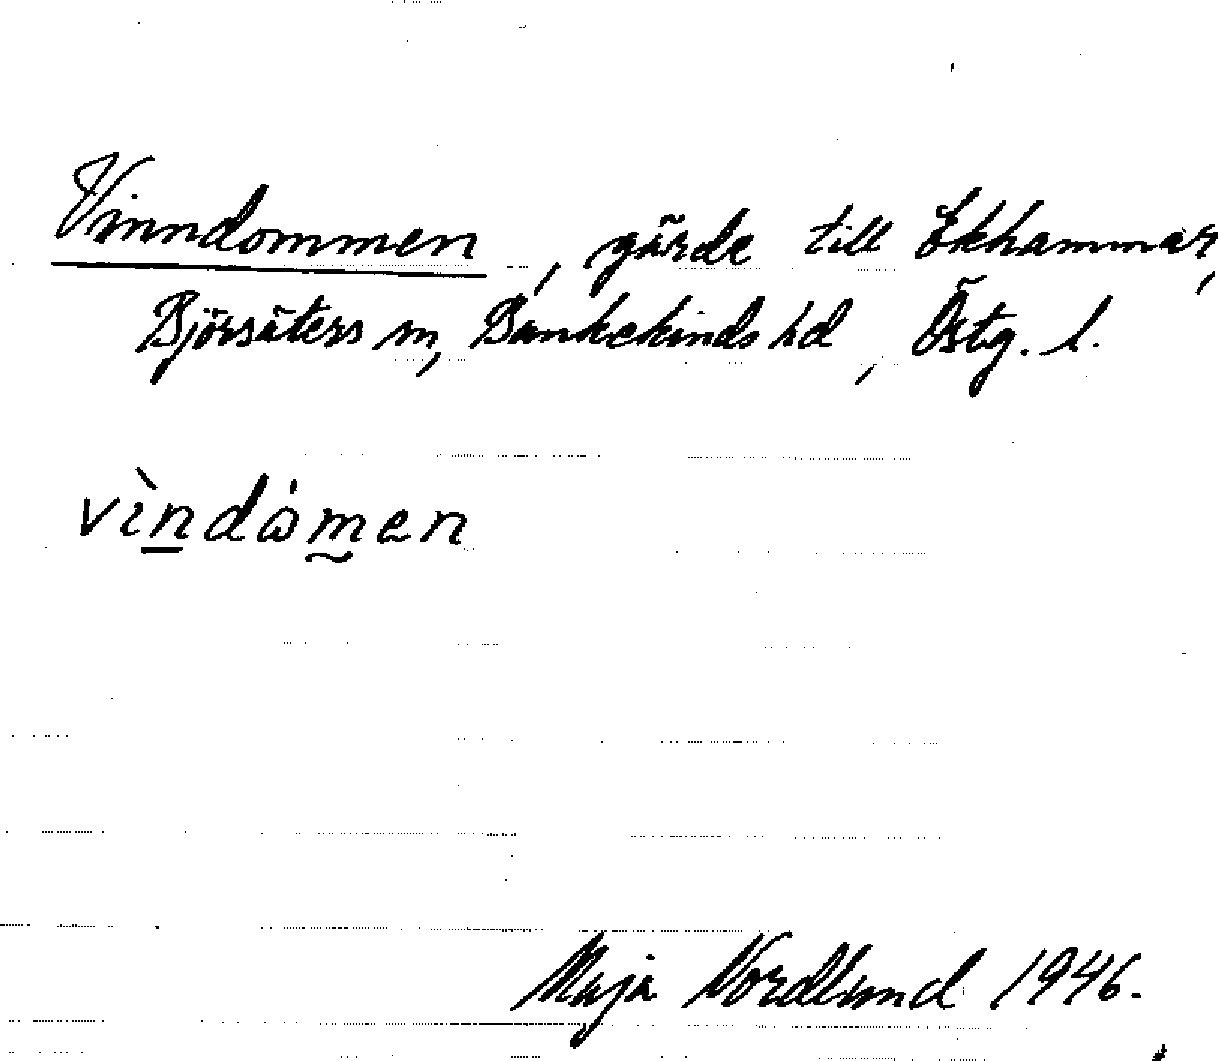 Vinndommen, gärde till Ekhammar,
Björsäters sn, Bankekinds hd, Östg. l.
vìndåmen
Maja Nordlund 1946.